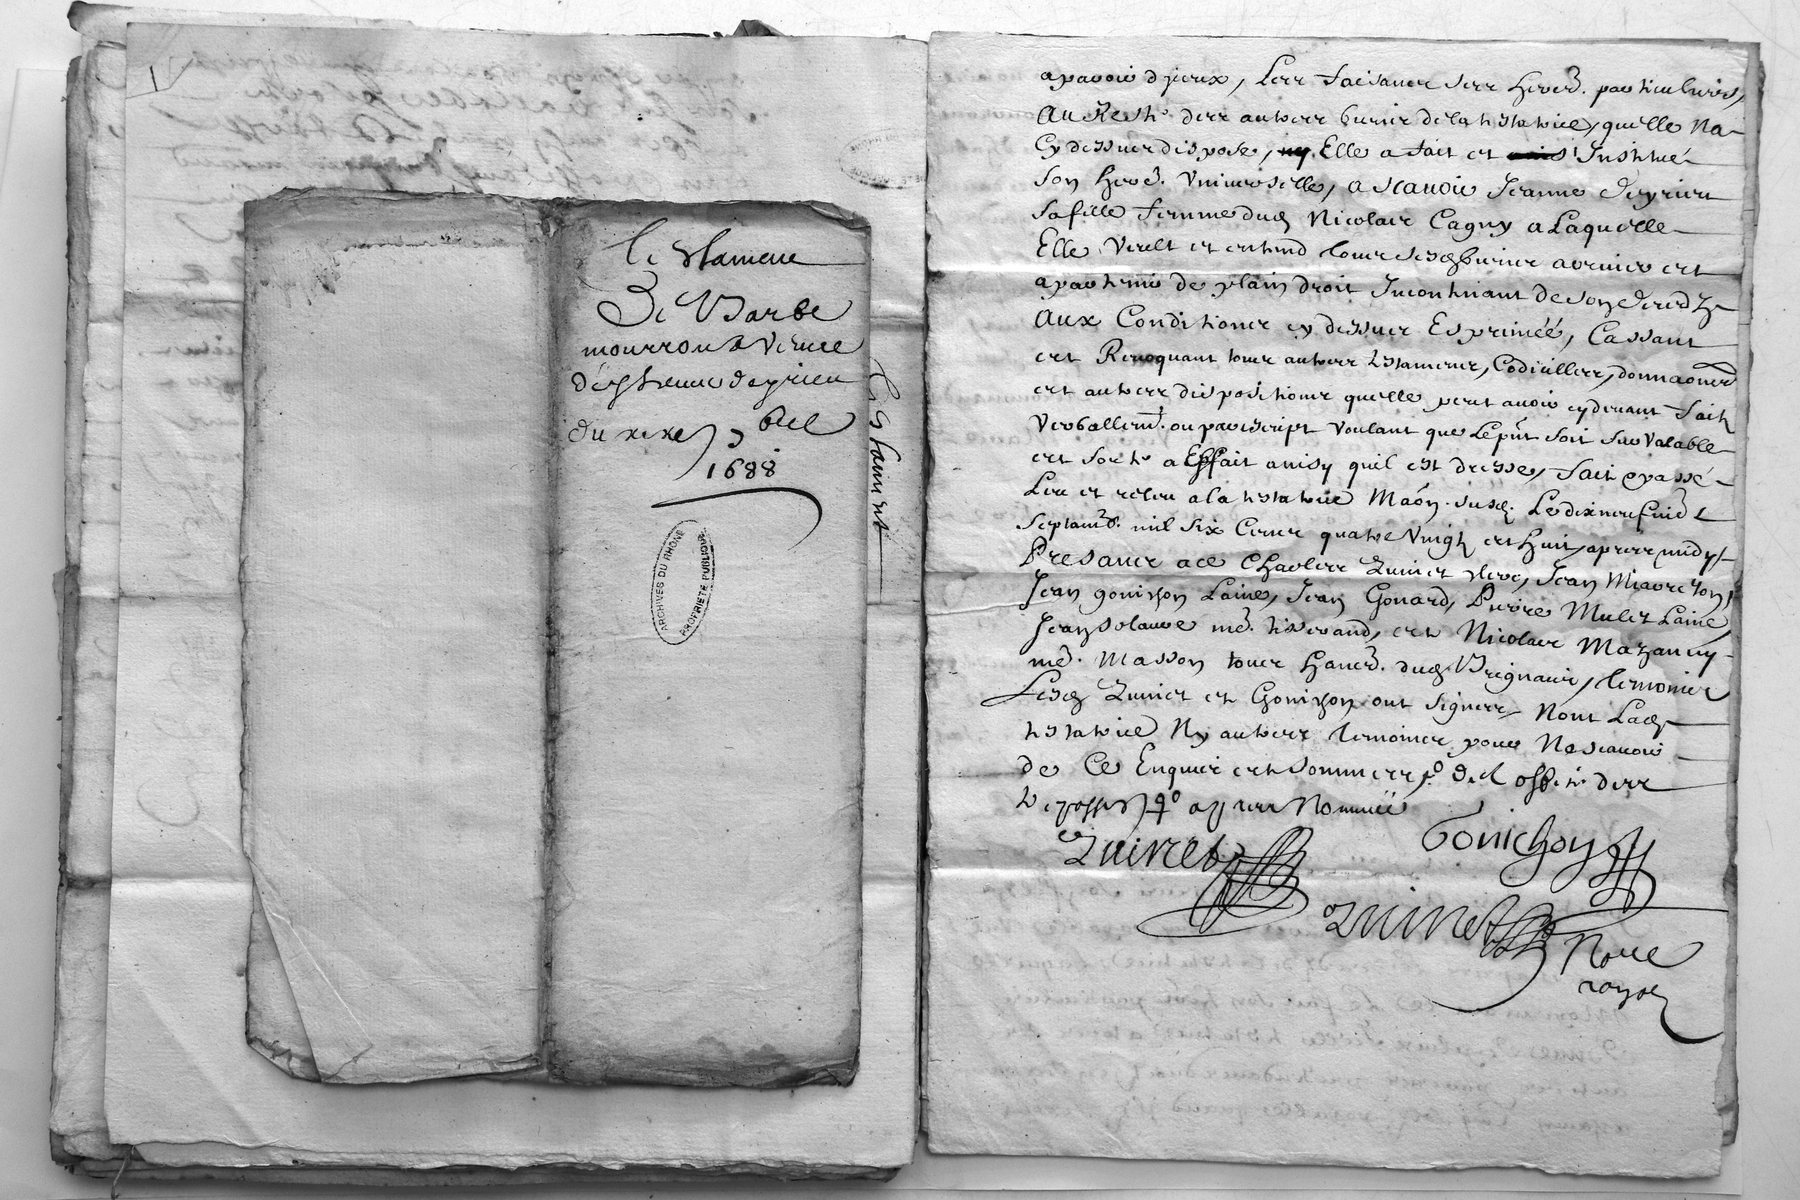 testament
De Barbe
mourron vefue
d'estienne deyrieu
du xixe 7bre
1688
ARCHIVES DU RHÔNE
PROPRIÉTÉ PUBLIQUE
Testament
a pavoir d'jceux, Les faisant ses herers. particuliers,
Au Reste des autres biens de la testatrice, quelle Na
Cy dessus dispose, Elle a fait et Institué
Son herer. Vniverselle, a scauoir Jeanne deyrieu
Sa fille femme dud. Nicolas Cagny a Laquelle
Elle Veult et entend tous sesd. biens arriver et
apartenir de plain droit Incontinant de son deces
Aux Conditions cy dessus Exprimée, Cassant
et Revoquant tous autres testamens, Codicilles, donnaons
et autres dispositions quelle peut auoir cy deuant faict
Verballemt. ou par escript Voulant que Le pnt soit Valable
et sorte a Effait ainsy quil est dressé, fait e passé
Leu et releu a la testatrice Maôn susd. Le dix neufuie
Septambr. mil Six Cens quatre Vingt et huit, apres midy
Presans a ce Charles Quinet clerc, Jean
Jean gonichon Laine, Jean Gonard, Pierre Mulet Laine
Jean me. tisserand, et Nicolas Mazancy
me. Masson tous hans. dud. Vrignais, temoins
Lesd. Quinet et Gonichon ont signes, Nont Lad.
testatrice Ny autres temoins pour Ne scauoir
de Ce Enquis et Sommes,
appres Nommée
Quinet
Gonichon
Quinet
Nore
royal